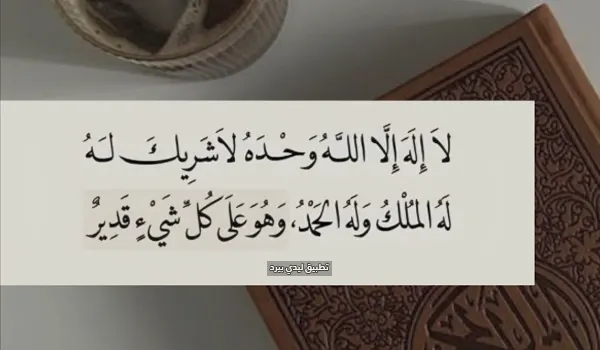 لاَ إِلَهَ إِلَّا اللَّهُ وَحْدَهُ لاَ شَرِيكَ لَهُ
لَهُ المُلْكُ وَلَهُ الحَمْدُ، وَهُوَ عَلَى كُلِّ شَيْءٍ قَدِيرٌ
تطبيق ليدي بيرد